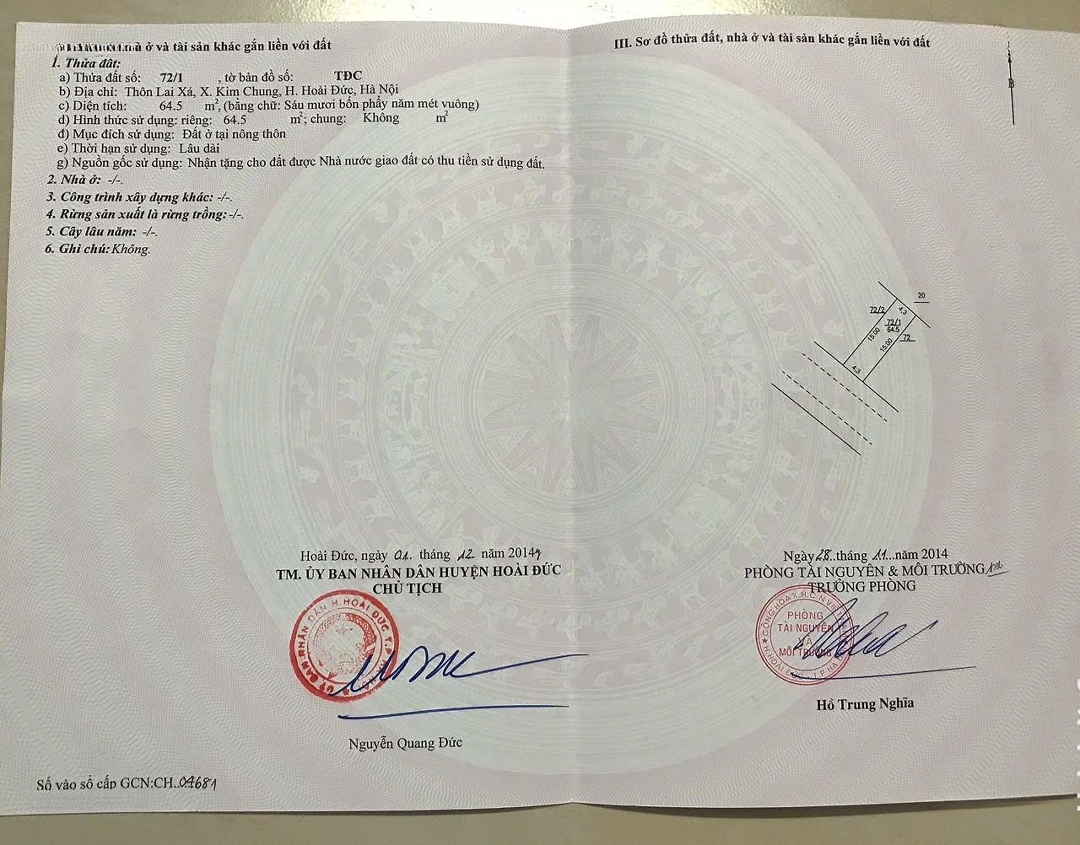 nhà ở và tài sản khác gắn liền với đất
1. Thửa đất:
a) Thửa đất số: 72/1 , tờ bản đồ số: TĐC
b) Địa chỉ: Thôn Lai Xá, X. Kim Chung, H. Hoài Đức, Hà Nội
c) Diện tích: 64.5 m², (bằng chữ: Sáu mươi bốn phẩy năm mét vuông)
d) Hình thức sử dụng: riêng: 64.5 m²; chung: Không m²
đ) Mục đích sử dụng: Đất ở tại nông thôn
e) Thời hạn sử dụng: Lâu dài
g) Nguồn gốc sử dụng: Nhận tặng cho đất được Nhà nước giao đất có thu tiền sử dụng đất.
2. Nhà ở: -/-.
3. Công trình xây dựng khác: -/-.
4. Rừng sản xuất là rừng trồng:-/-.
5. Cây lâu năm: -/-.
6. Ghi chú: Không.
Hoài Đức, ngày 01. tháng 12 năm 2014
TM. ỦY BAN NHÂN DÂN HUYỆN HOÀI ĐỨC
CHỦ TỊCH
ỦY BAN NHÂN DÂN H.HOÀI ĐỨC T.P
Nguyễn Quang Đức
Số vào sổ cấp GCN:CH..04681
III. Sơ đồ thửa đất, nhà ở và tài sản khác gắn liền với đất
B
20
72/2
4,3
72/1
64.5
15.00
72
15.00
4,3
Ngày 28..tháng 11...năm 2014
PHÒNG TÀI NGUYÊN & MÔI TRƯỜNG
TRƯỞNG PHÒNG
CỘNG HÒA X.H.C.N VIỆT
PHÒNG
TÀI NGUYÊN
VÀ
MÔI TRƯỜNG
H.HOÀI ĐỨC - T.P HÀ
Hồ Trung Nghĩa